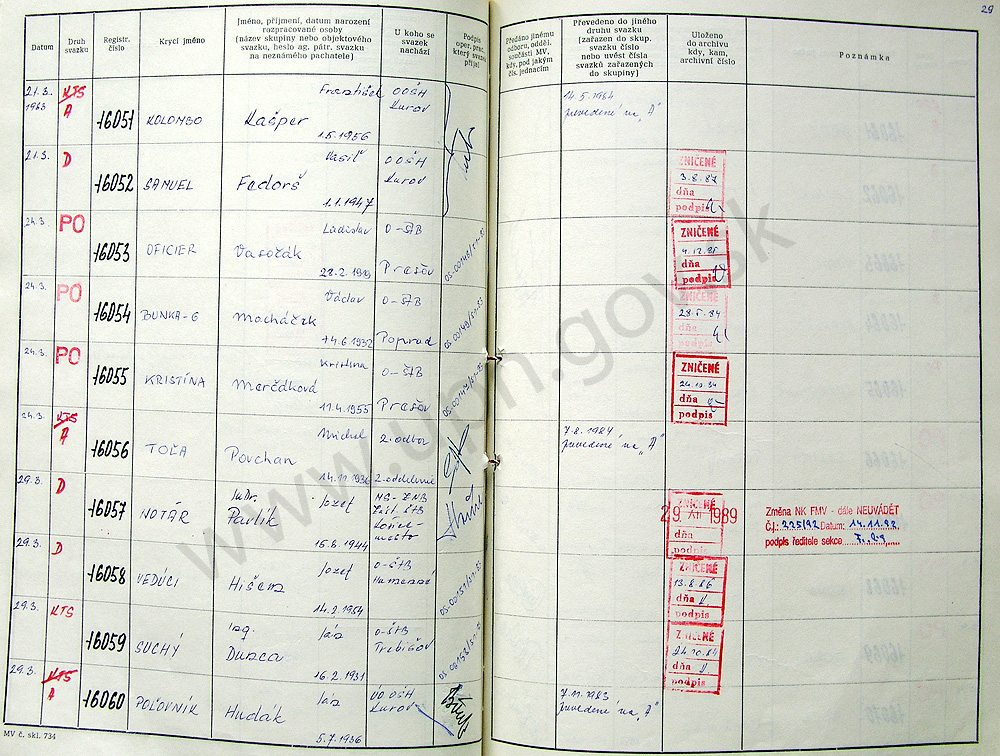 29
Datum
Druh svazku
Registr. číslo
Krycí jméno
Jméno, příjmení, datum narození
rozpracované osoby
(název skupiny nebo objektového
svazku, heslo ag. pátr. svazku
na neznámého pachatele)
U koho se
svazek
nachází
Podpis
oper. prac.,
který svazek
přijal
Předáno jinému
odboru, odděl.
součásti MV,
kdy, pod jakým
čís. jednacím
Převedeno do jiného
druhu svazku
(zařazen do skup.
svazku číslo
nebo uvést čísla
svazků zařazených
do skupiny)
Uloženo
do archivu
kdy, kam,
archivní číslo
Poznámka
21.3. 1983 KTS A 16051 KOLOMBO František Kašper 1.5.1956 OOŠH 14.5.1984 prevedené na „A"
21.3. D 16052 SAMUEL Vasiľ Fedorš 1.1.1947 OOŠH ZNIČENÉ 3.8.87 dňa podpis
24.3. PO 16053 OFICIER Ladislav 28.2. O-ŠTB Prešov ZNIČENÉ dňa podpis
24.3. PO 16054 BUNKA-6 Václav Macháček 14.6.1932 O-ŠTB Poprad ZNIČENÉ dňa podpis
24.3. PO 16055 KRISTÍNA Kristína Merčáková 11.4.1955 O-ŠTB Prešov ZNIČENÉ dňa podpis
24.3. KTS A 16056 TOĽA Michal Povchan 2. odbor 2. oddelenie 7.8.1984 prevedené na „A"
29.3. D 16057 NOTÁR JuDr. Jozef Pavlík 15.8.1944 ZNIČENÉ 29. XII. 1989 dňa podpis
Změna NK FMV - dále NEUVÁDĚT
Č.j.: 225/92 Datum: 14.11.92
podpis ředitele sekce
29.3. D 16058 VEDÚCI Jozef Hišem 14.2.1954 O-ŠTB Humenné ZNIČENÉ 13.8.86 dňa podpis
29.3. KTS 16059 SUCHÝ Ing. Ján 16.2.1931 O-ŠTB Trebišov ZNIČENÉ 24.10.84 dňa podpis
29.3. KTS A 16060 POĽOVNÍK Ján Hudák 5.7.1936 OOŠH 7.11.1983 prevedené na „A"
MV č. skl. 734
www.upn.gov.sk